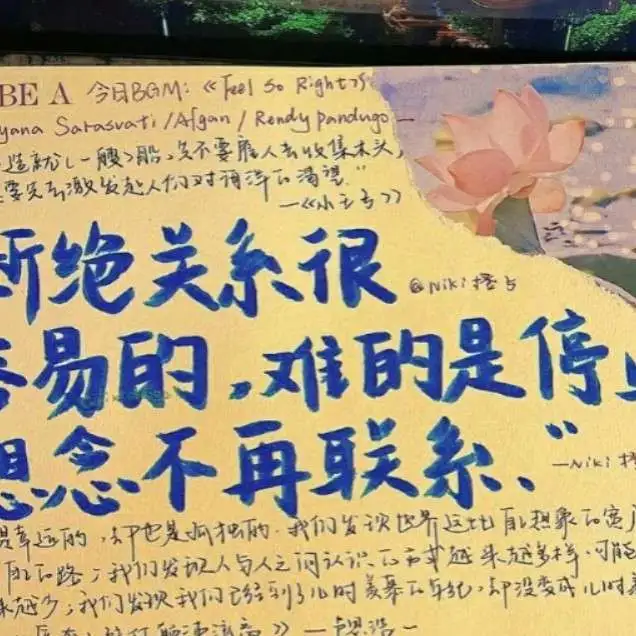 BE A 今日BGM:《Feel So Right》
yana Sarasvati /Afgan / Rendy Pandugo —
造就一艘船,先不要雇人去收集木头,
要先去激发起人们对海洋的渴望."
—《小王子》
断绝关系很
@Niki
容易的,难的是停止
想念不再联系、"
—Niki
是幸运的,却也是孤独的.我们发现世界远比自己想象的宽
自己的路;我们发现人与人之间认识的方式越来越多样,可能
来越少;我们发现我们已经到了儿时羡慕的年纪,却没变成儿时
》—卢思浩—